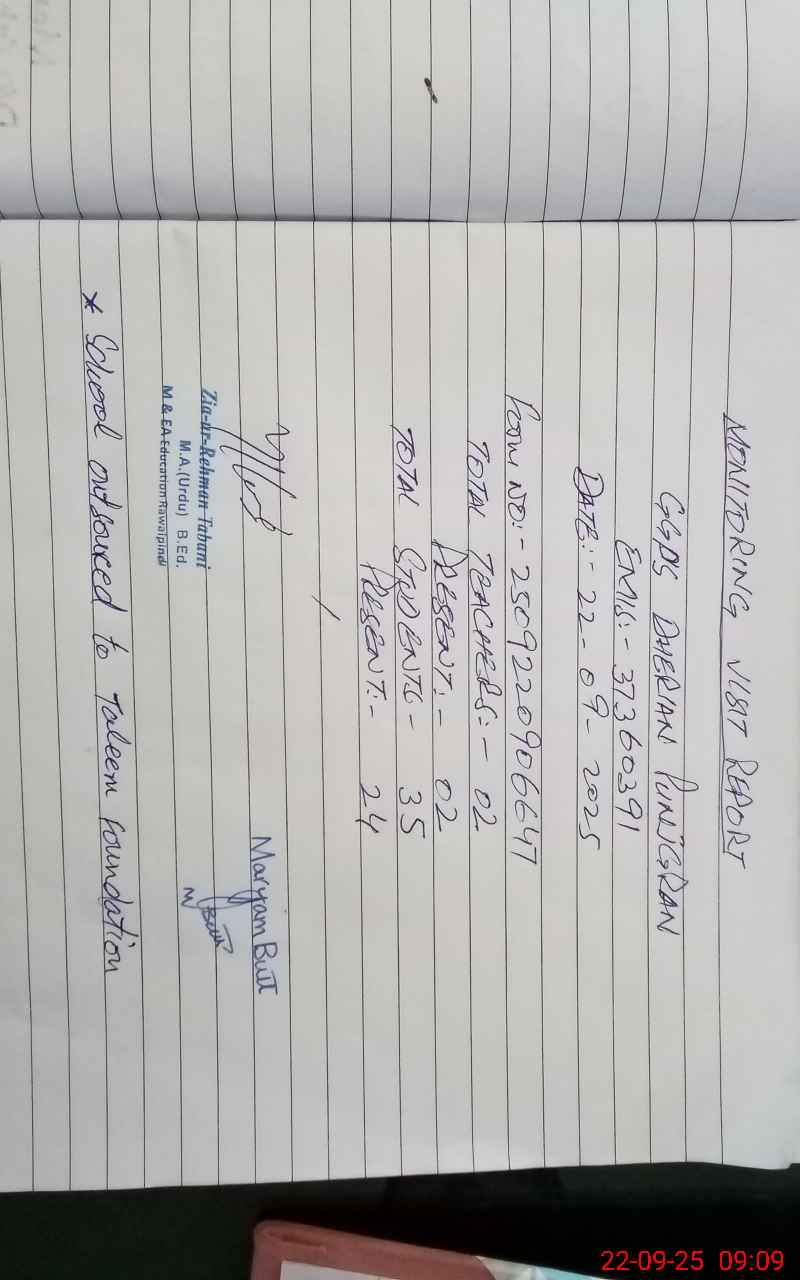 MONITORING VISIT REPORT
GGPS DHERIAN PUNJGRAN
EMIS:- 37360391
DATE:- 22-09-2025
FORM NO:- 2509220906647
TOTAL TEACHERS:- 02
PRESENT:- 02
TOTAL STUDENTS- 35
PRESENT:- 24
Maryam Butt
MButt
Zia-ur-Rehman Tabani
M.A.(Urdu) B.Ed.
M & EA Education Rawalpindi
* School outsourced to Taleem Foundation
22-09-25 09:09